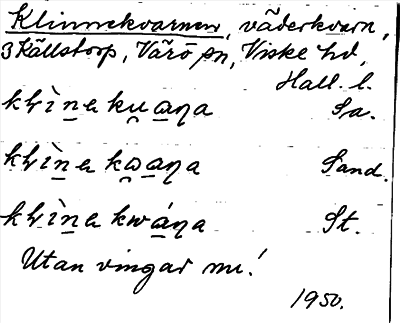 Klinnekvarnen, väderkvarn,
3 Källstorp, Värö sn, Viske hd,
Hall. l.
Sa.
Sand.
St.
Utan vingar nu!
1950.